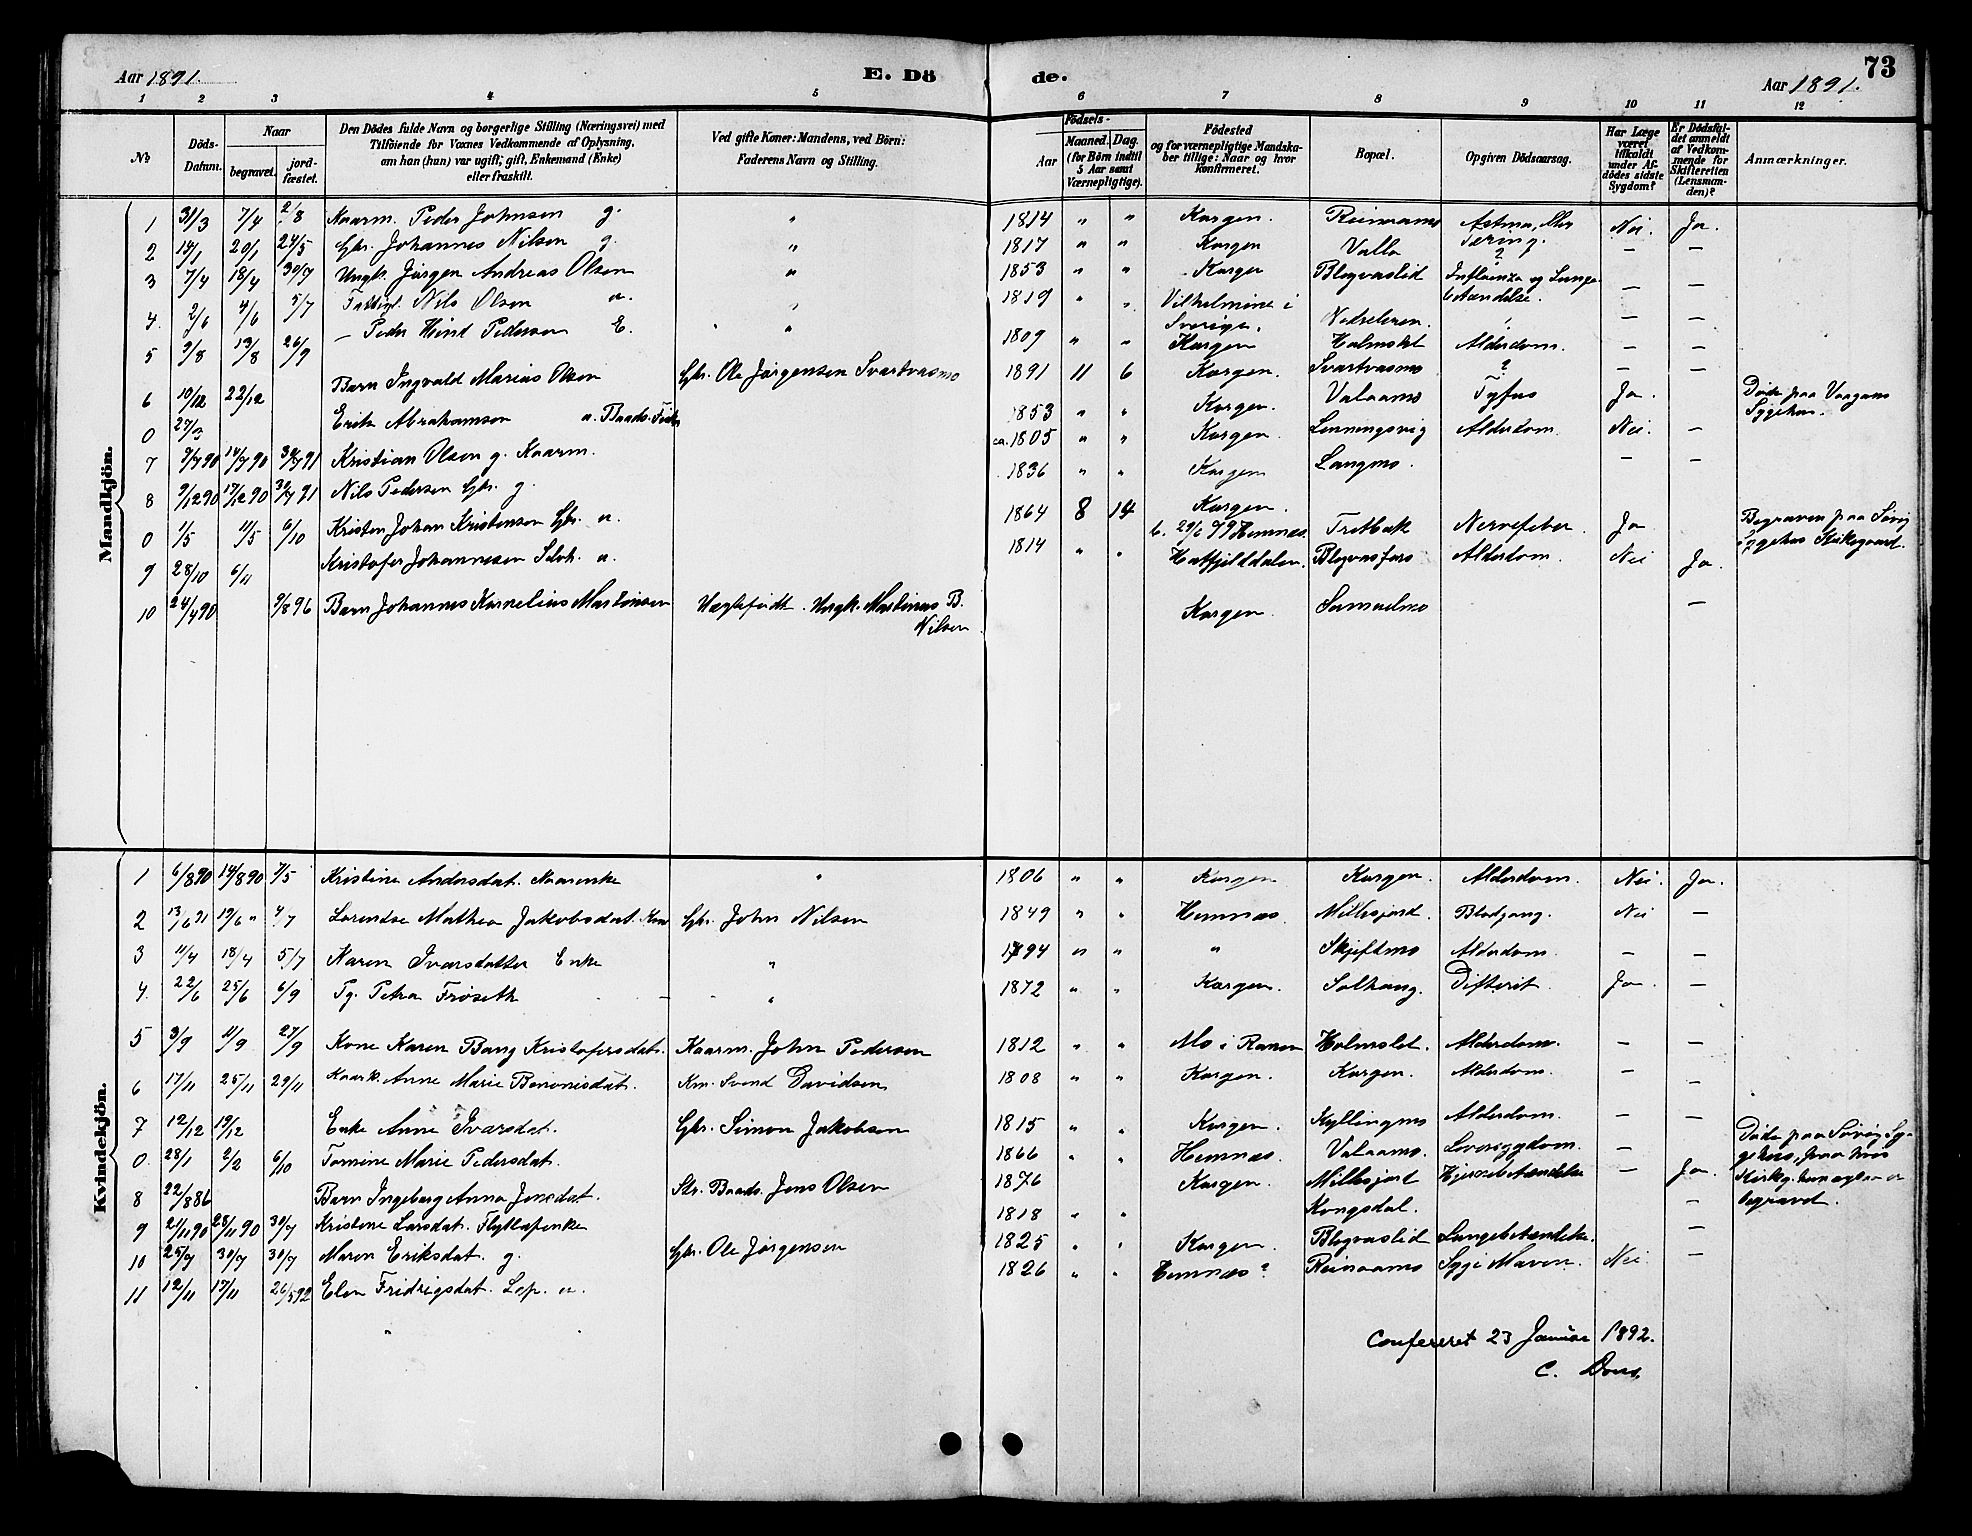 Aar 1891.
E. Dö
de.
Aar 1891.
73
1 2 3 4 5 6 7 8 9 10 11 12
No
Döds-Datum.
Naar
begravet.
jord-fæstet.
Den Dödes fulde Navn og borgerlige Stilling (Næringsvei) med
Tilföiende for Voxnes Vedkommende af Oplysning,
om han (hun) var ugift, gift, Enkemand (Enke)
eller fraskilt.
Ved gifte Koner: Mandens, ved Börn:
Faderens Navn og Stilling.
Födsels-
Aar
Maaned. Dag.
(for Börn indtil
5 Aar samt
Værnepligtige).
Födested
og for værnepligtige Mandska-
ber tillige: Naar og hvor
konfirmeret.
Bopæl.
Opgiven Dödsaarsag.
Har Læge
været
tilkaldt
under Af-
dödes sidste
Sygdom?
Er Dödsfal-
det anmeldt
af Vedkom-
mende for
Skifteretten
(Lensman-
den)?
Anmærkninger.
Mandkjön.
1 31/3 7/4 2/8 Kaarm. Peder Johnsen g. " 1814 " " Korgen. Reinaamo Astma, eller Tæring. Nei. Ja.
2 14/1 20/1 24/5 Gbr. Johannes Nilsen g. " 1817 " " Korgen Valla ? — —
3 7/4 18/4 30/7 Ungk. Jørgen Andreas Olsen " 1853 " " Korgen Blegvaslid Influenza og Lunge betændelse. — —
4. 2/6 4/6 5/7 Fattigl. Nils Olsen u. " 1819 " " Vilhelmine i Sverige. — —
5 9/8 13/8 26/9 — Peder Hind Pedersen E. " 1809 " " Korgen Holmslet Alderdom. — —
6 10/12 22/12 Barn Ingvald Marius Olsen Gbr. Ole Jørgensen Svartvasmo 1891 11 6 Korgen. Svartvasmo ? — —
0 27/3 Erik Abrahamson u. Baads. 1853 " " Korgen. Valaamo Tyfus Ja. Døde paa Vaagans Sygehus.
7 9/7 90 14/7 90 30/7 91 Kristian Olsen g. Kaarm. ca. 1805 " " Korgen. Lenningsvig Alderdom. Nei. —
8 9/12 90 17/12 90 30/7 91 Nils Pedersen Gbr. g. 1836 " " Korgen Langmo. — —
0 1/5 11/5 6/10 Kristen Johan Kristensen Gbr. u. 1864 8 14 Korgen. c. 29/6 79 Hemnæs. Tretbak Nervefeber. Ja Begraven paa Søvig sygehus Kirkegaard.
9 28/10 6/11 Kristofer Johannesen Selvh. u. 1814 " " Hatfjelddalen. Blegvasfors Alderdom. Nei Ja.
10 24/4 90 9/8 96 Barn Johannes Kornelius Martinsen Uægtefødt. Ungk. Martinus B. Nilsen Korgen. Samuelmo —
Kvindekjön.
1 6/8 90 14/8 90 7/5 Kristine Andersdat. Kaarenke " 1806 " " Korgen Korgen. Alderdom. Nei. Ja.
2 13/6 91 19/6 " 4/7 Lorentse Mathea Jakobsdat. Kone Gbr. John Nilsen 1849 " " Hemnæs. Millesjord. Blodgang. Nei —
3 11/4 18/4 5/7 Karen Ivarsdatter Enke " 1794 " " " Skjeftmo Alderdom. — —
4. 22/6 25/6 6/9 Pg. Petra Frøseth " 1872 " " Korgen. Solhaug. Difterit. Ja. —
5 3/9 11/9 27/9 Kone Karen Bang Kristofersdat. Kaarm. John Pedersen 1812 " " Mo i Ranen Holmslet. Alderdom. — —
6 17/11 25/11 29/11 Kaark. Anne Marie Benonisdat. Km. Svend Davidsen 1808 " " Korgen. Korgen. Alderdom. — —
7 12/12 19/12 Enke Anne Ivarsdat. Gbr. Simon Jakobsen 1815 " " Korgen. Kyllingmo Alderdom. — —
0. 28/1 2/2 6/10 Tomine Marie Pedersdat. 1866 " " Hemnæs. Valaamo. Leversygdom. — Døde paa Søvig Sy- gehus, paa hvis Kirkeg. begravet.
8 22/8 86 Barn Ingeborg Anna Jensdat. Str. Baads. Jens Olsen 1876 Korgen. Millesjord Hjernebetændelse — Ja.
9 21/11 90 28/11 90 30/7 Kristine Larsdat. 1818 " " Kongsdal. —
10 25/7 30/7 30/7 Maren Eriksdat. g. Gbr. Ole Jørgensen 1825 " " Korgen. Blegvaslid Lungebetændelse. —
11 12/11 17/11 26/5 92 Elen Fridrigsdat. Lap. u. 1826 " " Hemnæs? Reinaamo Syge Maven. Nei. —
Confereret 23 Januar 1892.
C.